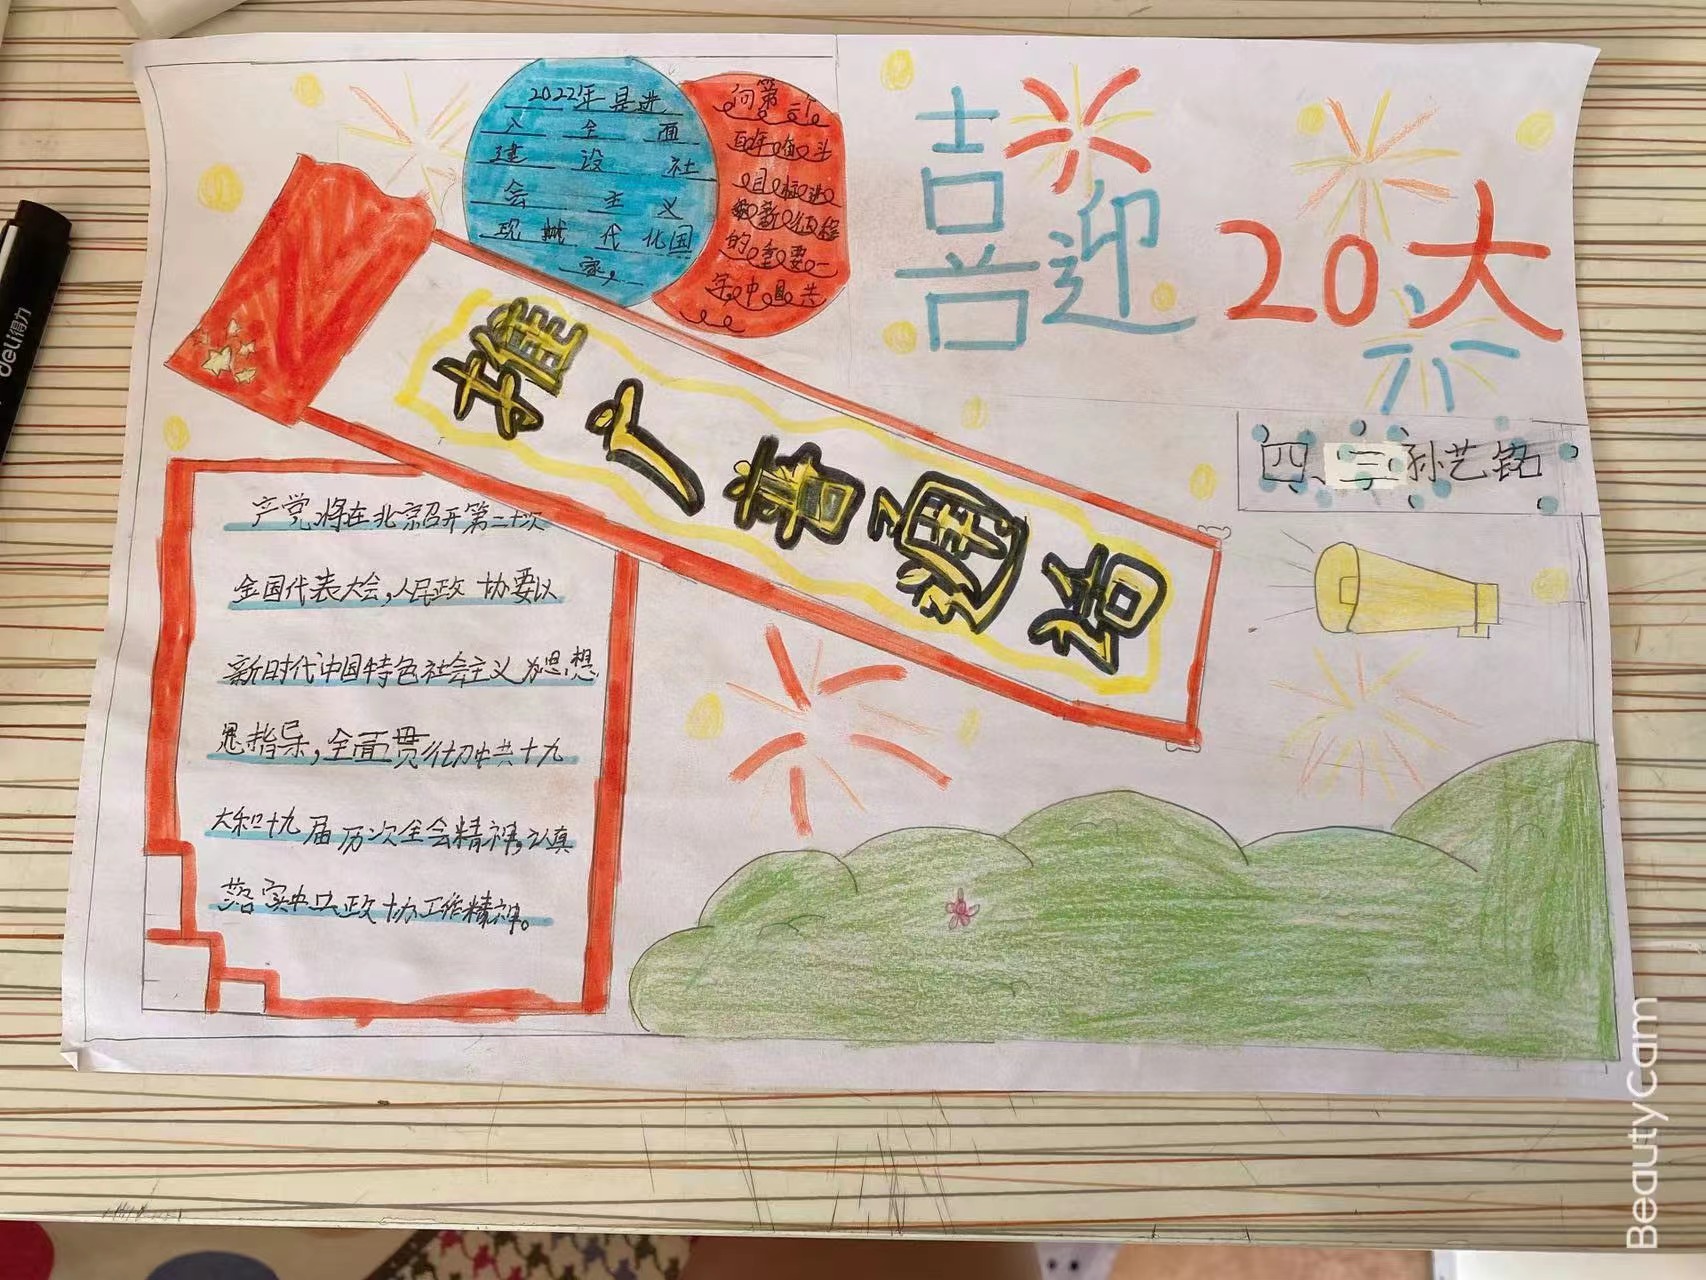 2022年是进
入全面
建设社
会主义
现代化国
家，
向第二个
百年奋斗
目标进
新征程
的重要一
年中国共
喜迎20大
推广普通话
四、三孙艺铭
产党将在北京召开第二十次
全国代表大会，人民政协要以
新时代中国特色社会主义为思想
思指导，全面贯彻中共十九
大和十九届历次全会精神，认真
落实中共政协工作精神。
deli得力
BeautyCam